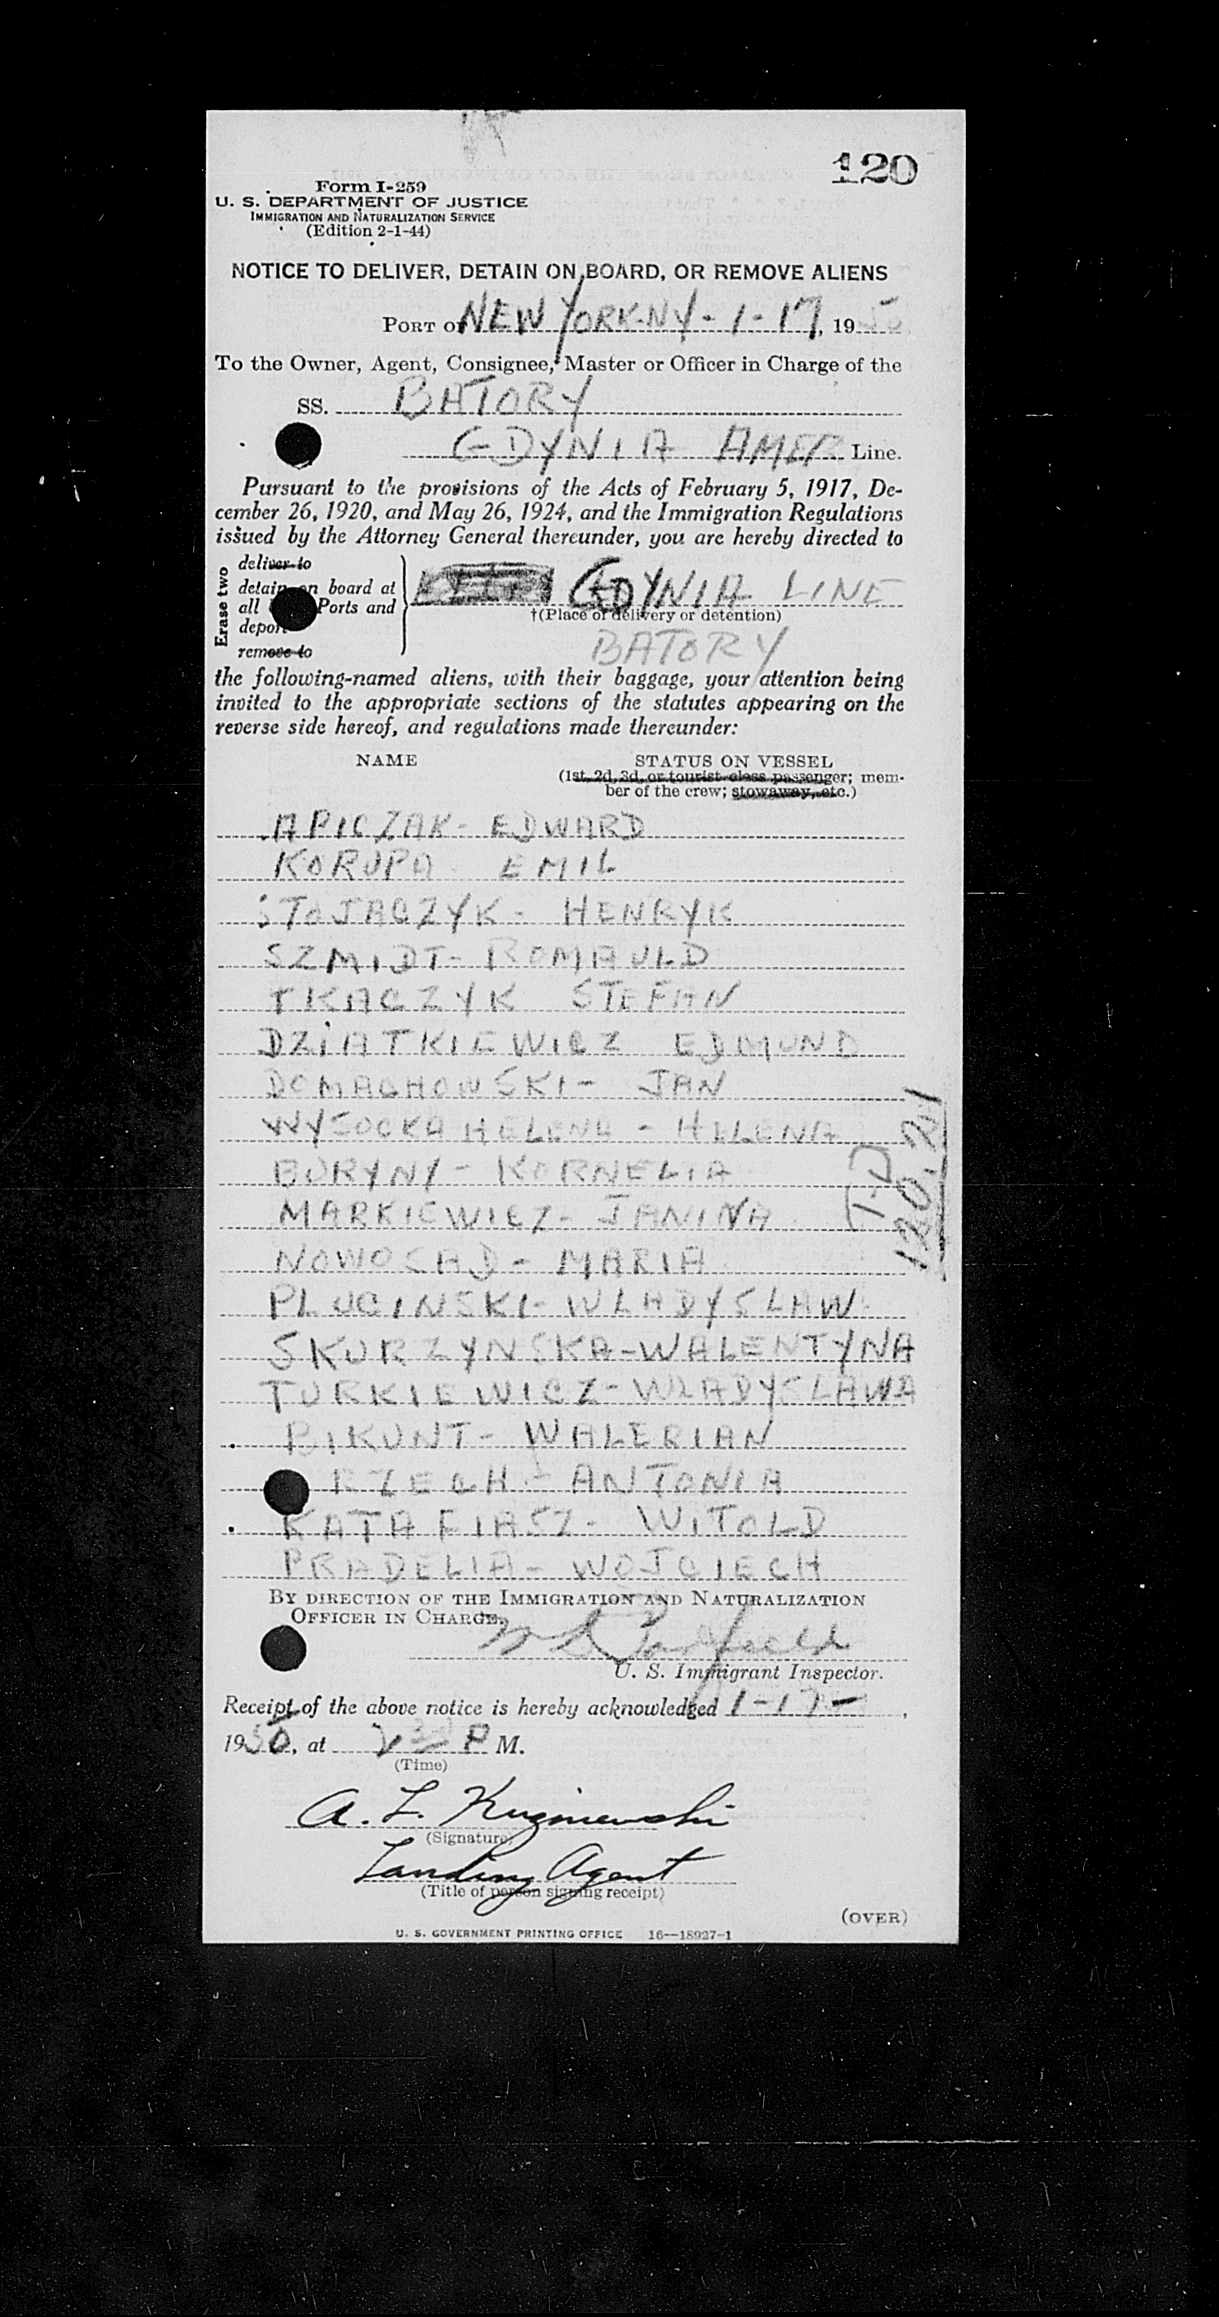 120
Form I-259
U. S. DEPARTMENT OF JUSTICE
IMMIGRATION AND NATURALIZATION SERVICE
(Edition 2-1-44)
NOTICE TO DELIVER, DETAIN ON BOARD, OR REMOVE ALIENS
PORT OF NEW YORK-NY- 1-17, 1950
To the Owner, Agent, Consignee, Master or Officer in Charge of the
SS. BATORY
GDYNIA AMER Line.
Pursuant to the provisions of the Acts of February 5, 1917, De-
cember 26, 1920, and May 26, 1924, and the Immigration Regulations
issued by the Attorney General thereunder, you are hereby directed to
Erase two
deliver to
detain on board at
all Ports and
deport
remove to
GDYNIA LINE
†(Place of delivery or detention)
BATORY
the following-named aliens, with their baggage, your attention being
invited to the appropriate sections of the statutes appearing on the
reverse side hereof, and regulations made thereunder:
NAME STATUS ON VESSEL
(1st, 2d, 3d, or tourist class passenger; mem-
ber of the crew; stowaway, etc.)
APICZAK- EDWARD
KORUPA EMIL
STOJACZYK- HENRYK
SZMIDT- ROMAULD
TKACZYK STEFAN
DZIATKIEWICZ EDMUND
DOMACHOWSKI- JAN
WYSOCKA HELENA - HELENA
BURYNY- KORNELIA
MARKIEWICZ- JANINA
NOWOSAD- MARIA
PLUCINSKI- WLADYSLAW
SKURZYNSKA-WALENTYNA
TURKIEWICZ-WLADYSLAWA
BIKUNT- WALERIAN
RZECH- ANTONIA
KATAFIASZ- WITOLD
PRADELIA- WOJCIECH
BY DIRECTION OF THE IMMIGRATION AND NATURALIZATION
OFFICER IN CHARGE.
U. S. Immigrant Inspector.
Receipt of the above notice is hereby acknowledged 1-17-,
1950, at 230 P M.
(Time)
A. L. Kuzniewski
(Signature)
Landing Agent
(Title of person signing receipt)
(OVER)
U. S. GOVERNMENT PRINTING OFFICE 16—18927-1